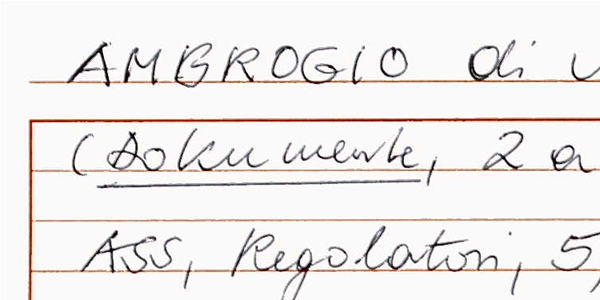 AMBROGIO di
(Dokumente, 2 a
ASS, Regolatori, 5,